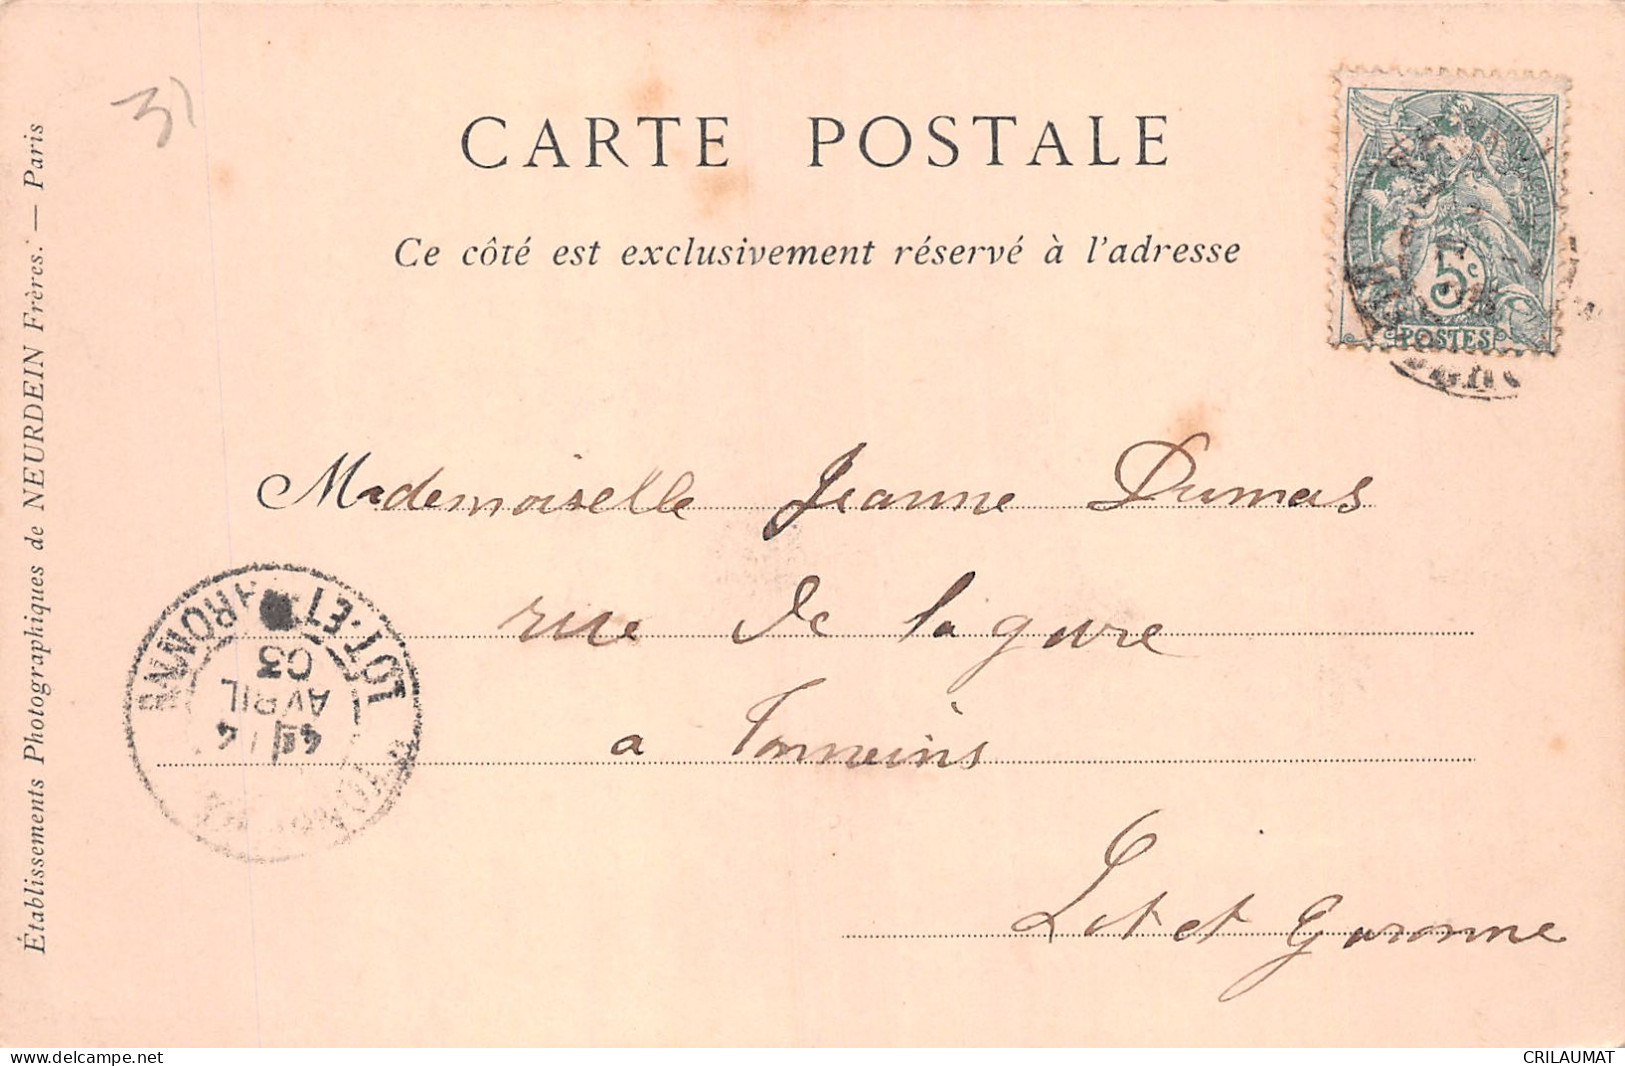 31
CARTE POSTALE
Ce côté est exclusivement réservé à l'adresse
5c
POSTES
Mademoiselle Jeanne Dumas
rue de la gare
a Tonneins
Lot et Garonne
LOT-ET-GARONNE
4 AVRIL 03
Établissements Photographiques de NEURDEIN Frères. — Paris
www.delcampe.net
CRILAUMAT